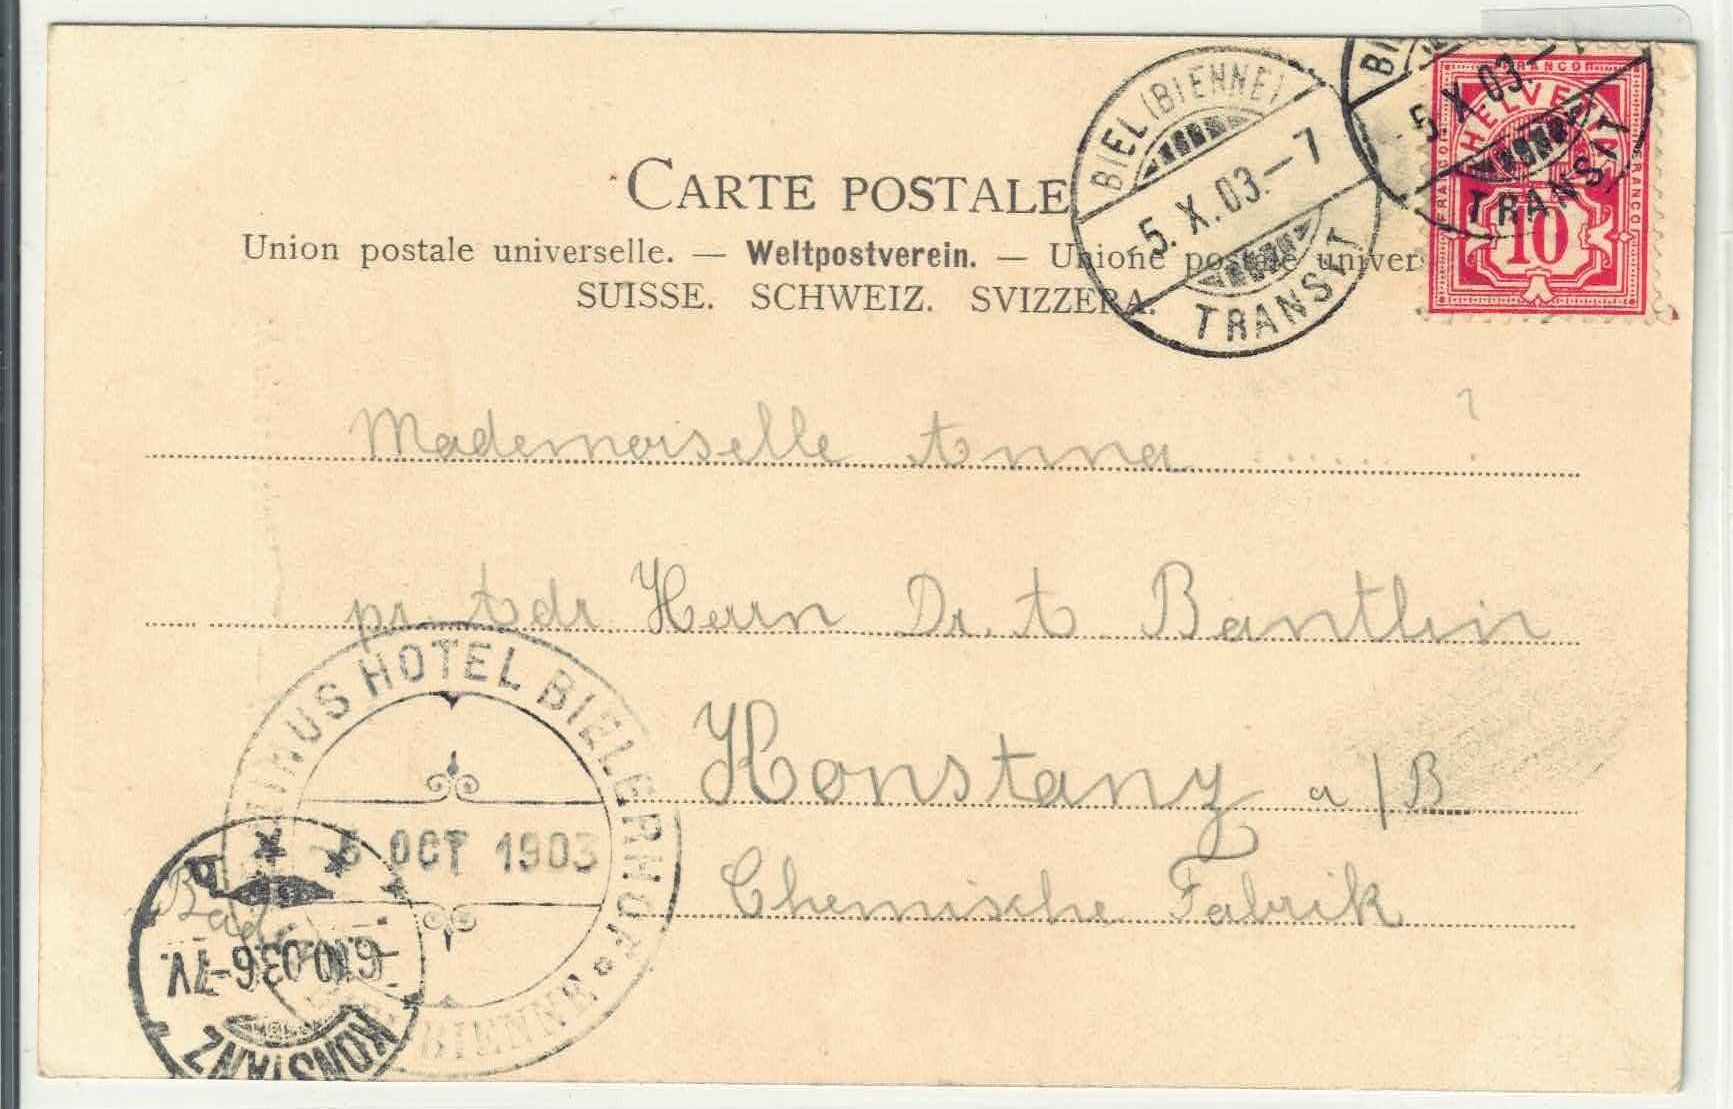 CARTE POSTALE
Union postale universelle. — Weltpostverein. — Unione postale univer
SUISSE. SCHWEIZ. SVIZZERA.
BIEL (BIENNE)
5. X. 03. – 7
TRANSIT
5. X. 03. –
TRANSIT
FRANCO
HELVETIA
10
Mademoiselle Anna ...... ?
pr. Adr Herrn Dr. A Bantlin
Konstanz a/B
Chemische Fabrik
HOTEL BIELERHOF
5 OCT 1903
BIENNE
Bad
6.10.03.6-7V.
KONSTANZ